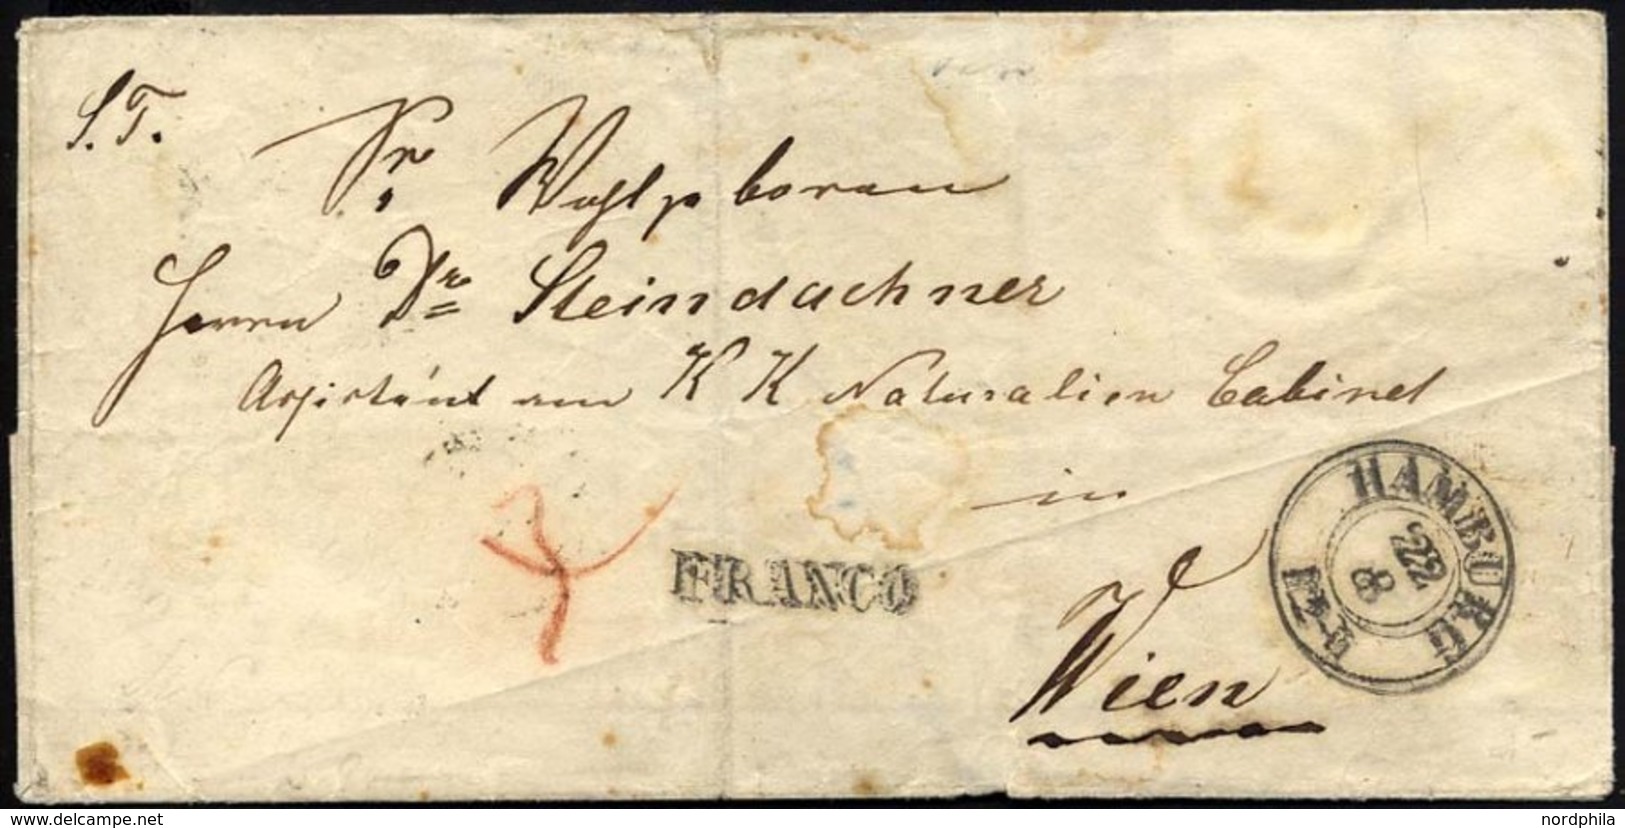 S. T.
Sr. Wohlgeboren
Herrn Dr. Steindachner
Assistent am K K Naturalien Cabinet
in
FRANCO
Wien
HAMBURG
22
8
delcampe.net
nordphila